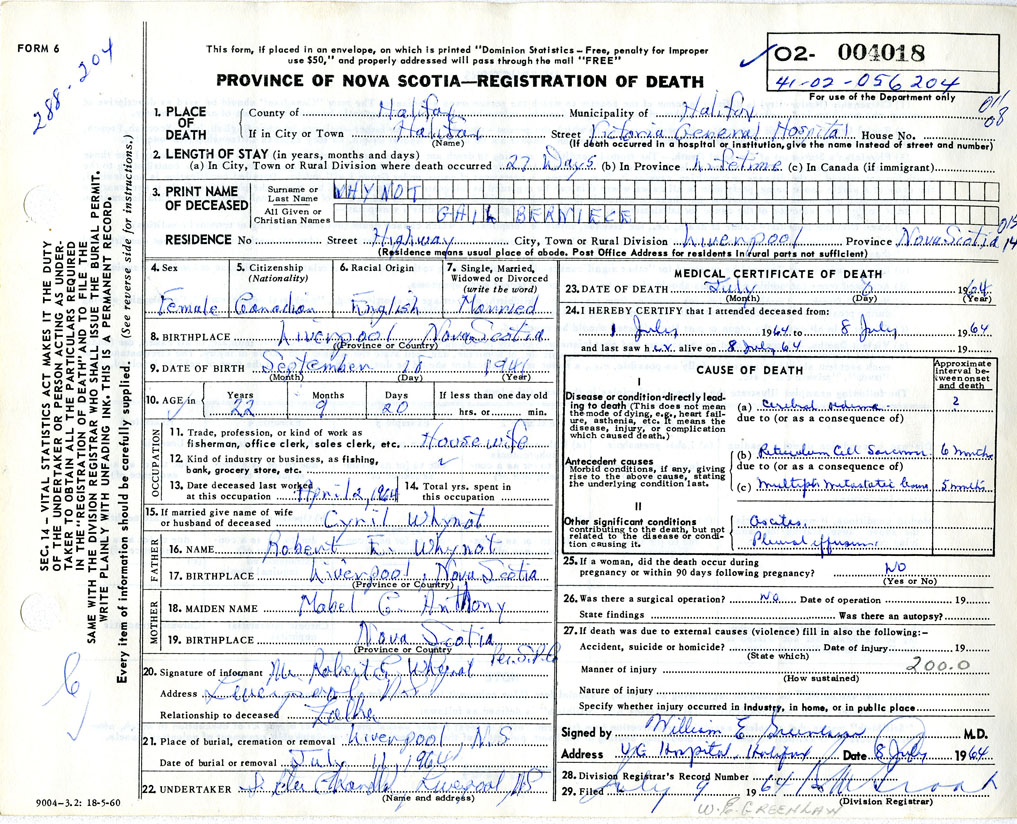 FORM 6
288-204
This form, if placed in an envelope, on which is printed "Dominion Statistics—Free, penalty for improper
use $50," and properly addressed will pass through the mail "FREE"
PROVINCE OF NOVA SCOTIA—REGISTRATION OF DEATH
02- 004018
41-02-056204
For use of the Department only
011
08
1. PLACE OF DEATH
County of Halifax Municipality of Halifax
If in City or Town Halifax Street Victoria General Hospital House No.
(Name) (If death occurred in a hospital or institution, give the name instead of street and number)
2. LENGTH OF STAY (in years, months and days)
(a) In City, Town or Rural Division where death occurred 27 Days (b) In Province Lifetime (c) In Canada (if immigrant)
3. PRINT NAME OF DECEASED
Surname or Last Name WHYNOT
All Given or Christian Names GAIL BERNIECE
RESIDENCE No Street Highway City, Town or Rural Division Liverpool Province Nova Scotia
(Residence means usual place of abode. Post Office Address for residents in rural parts not sufficient)
4. Sex Female
5. Citizenship (Nationality) Canadian
6. Racial Origin English
7. Single, Married, Widowed or Divorced (write the word) Married
8. BIRTHPLACE Liverpool Nova Scotia
(Province or Country)
9. DATE OF BIRTH September 18 1941
(Month) (Day) (Year)
10. AGE in Years 22 Months 9 Days 20 If less than one day old hrs. or min.
OCCUPATION
11. Trade, profession, or kind of work as
fisherman, office clerk, sales clerk, etc. Housewife
12. Kind of industry or business, as fishing,
bank, grocery store, etc.
13. Date deceased last worked at this occupation April 2, 1964
14. Total yrs. spent in this occupation
15. If married give name of wife
or husband of deceased Cyril Whynot
FATHER
16. NAME Robert E. Whynot
17. BIRTHPLACE Liverpool, Nova Scotia
(Province or Country)
MOTHER
18. MAIDEN NAME Mabel C. Anthony
19. BIRTHPLACE Nova Scotia
(Province or Country)
20. Signature of informant Mr. Robert E. Whynot
Address Liverpool N.S.
Relationship to deceased Father
21. Place of burial, cremation or removal Liverpool N.S
Date of burial or removal July 11, 1964
22. UNDERTAKER Chandler Liverpool NS
(Name and address)
9004—3.2: 18-5-60
MEDICAL CERTIFICATE OF DEATH
23. DATE OF DEATH July 8 1964
(Month) (Day) (Year)
24. I HEREBY CERTIFY that I attended deceased from:
1 July 1964 to 8 July 1964
and last saw her alive on 8 July 64 19
CAUSE OF DEATH
Approximate interval between onset and death
I
Disease or condition-directly leading to death (This does not mean the mode of dying, e.g., heart failure, asthenia, etc. It means the disease, injury, or complication which caused death.)
(a) Cerebral edema 2
due to (or as a consequence of)
Antecedent causes
Morbid conditions, if any, giving rise to the above cause, stating the underlying condition last.
(b) Reticulum Cell Sarcoma 6 months
due to (or as a consequence of)
(c) Multiple metastatic 5 months
II
Other significant conditions
contributing to the death, but not related to the disease or condition causing it.
Ascites
Pleural effusion
25. If a woman, did the death occur during
pregnancy or within 90 days following pregnancy? NO
(Yes or No)
26. Was there a surgical operation? NO Date of operation 19
State findings Was there an autopsy?
27. If death was due to external causes (violence) fill in also the following:—
Accident, suicide or homicide? Date of injury 19
(State which)
Manner of injury 200.0
(How sustained)
Nature of injury
Specify whether injury occurred in industry, in home, or in public place
Signed by William E Greenlaw M.D.
Address V.G. Hospital, Halifax Date 8 July 1964
28. Division Registrar's Record Number
29. Filed July 9 1964
(Division Registrar)
W. E. GREENLAW
SEC. 14—VITAL STATISTICS ACT MAKES IT THE DUTY
OF THE UNDERTAKER OR PERSON ACTING AS UNDER-
TAKER TO OBTAIN ALL THE PARTICULARS REQUIRED
IN THE "REGISTRATION OF DEATH" AND TO FILE THE
SAME WITH THE DIVISION REGISTRAR WHO SHALL ISSUE THE BURIAL PERMIT.
WRITE PLAINLY WITH UNFADING INK. THIS IS A PERMANENT RECORD.
Every item of information should be carefully supplied. (See reverse side for instructions.)